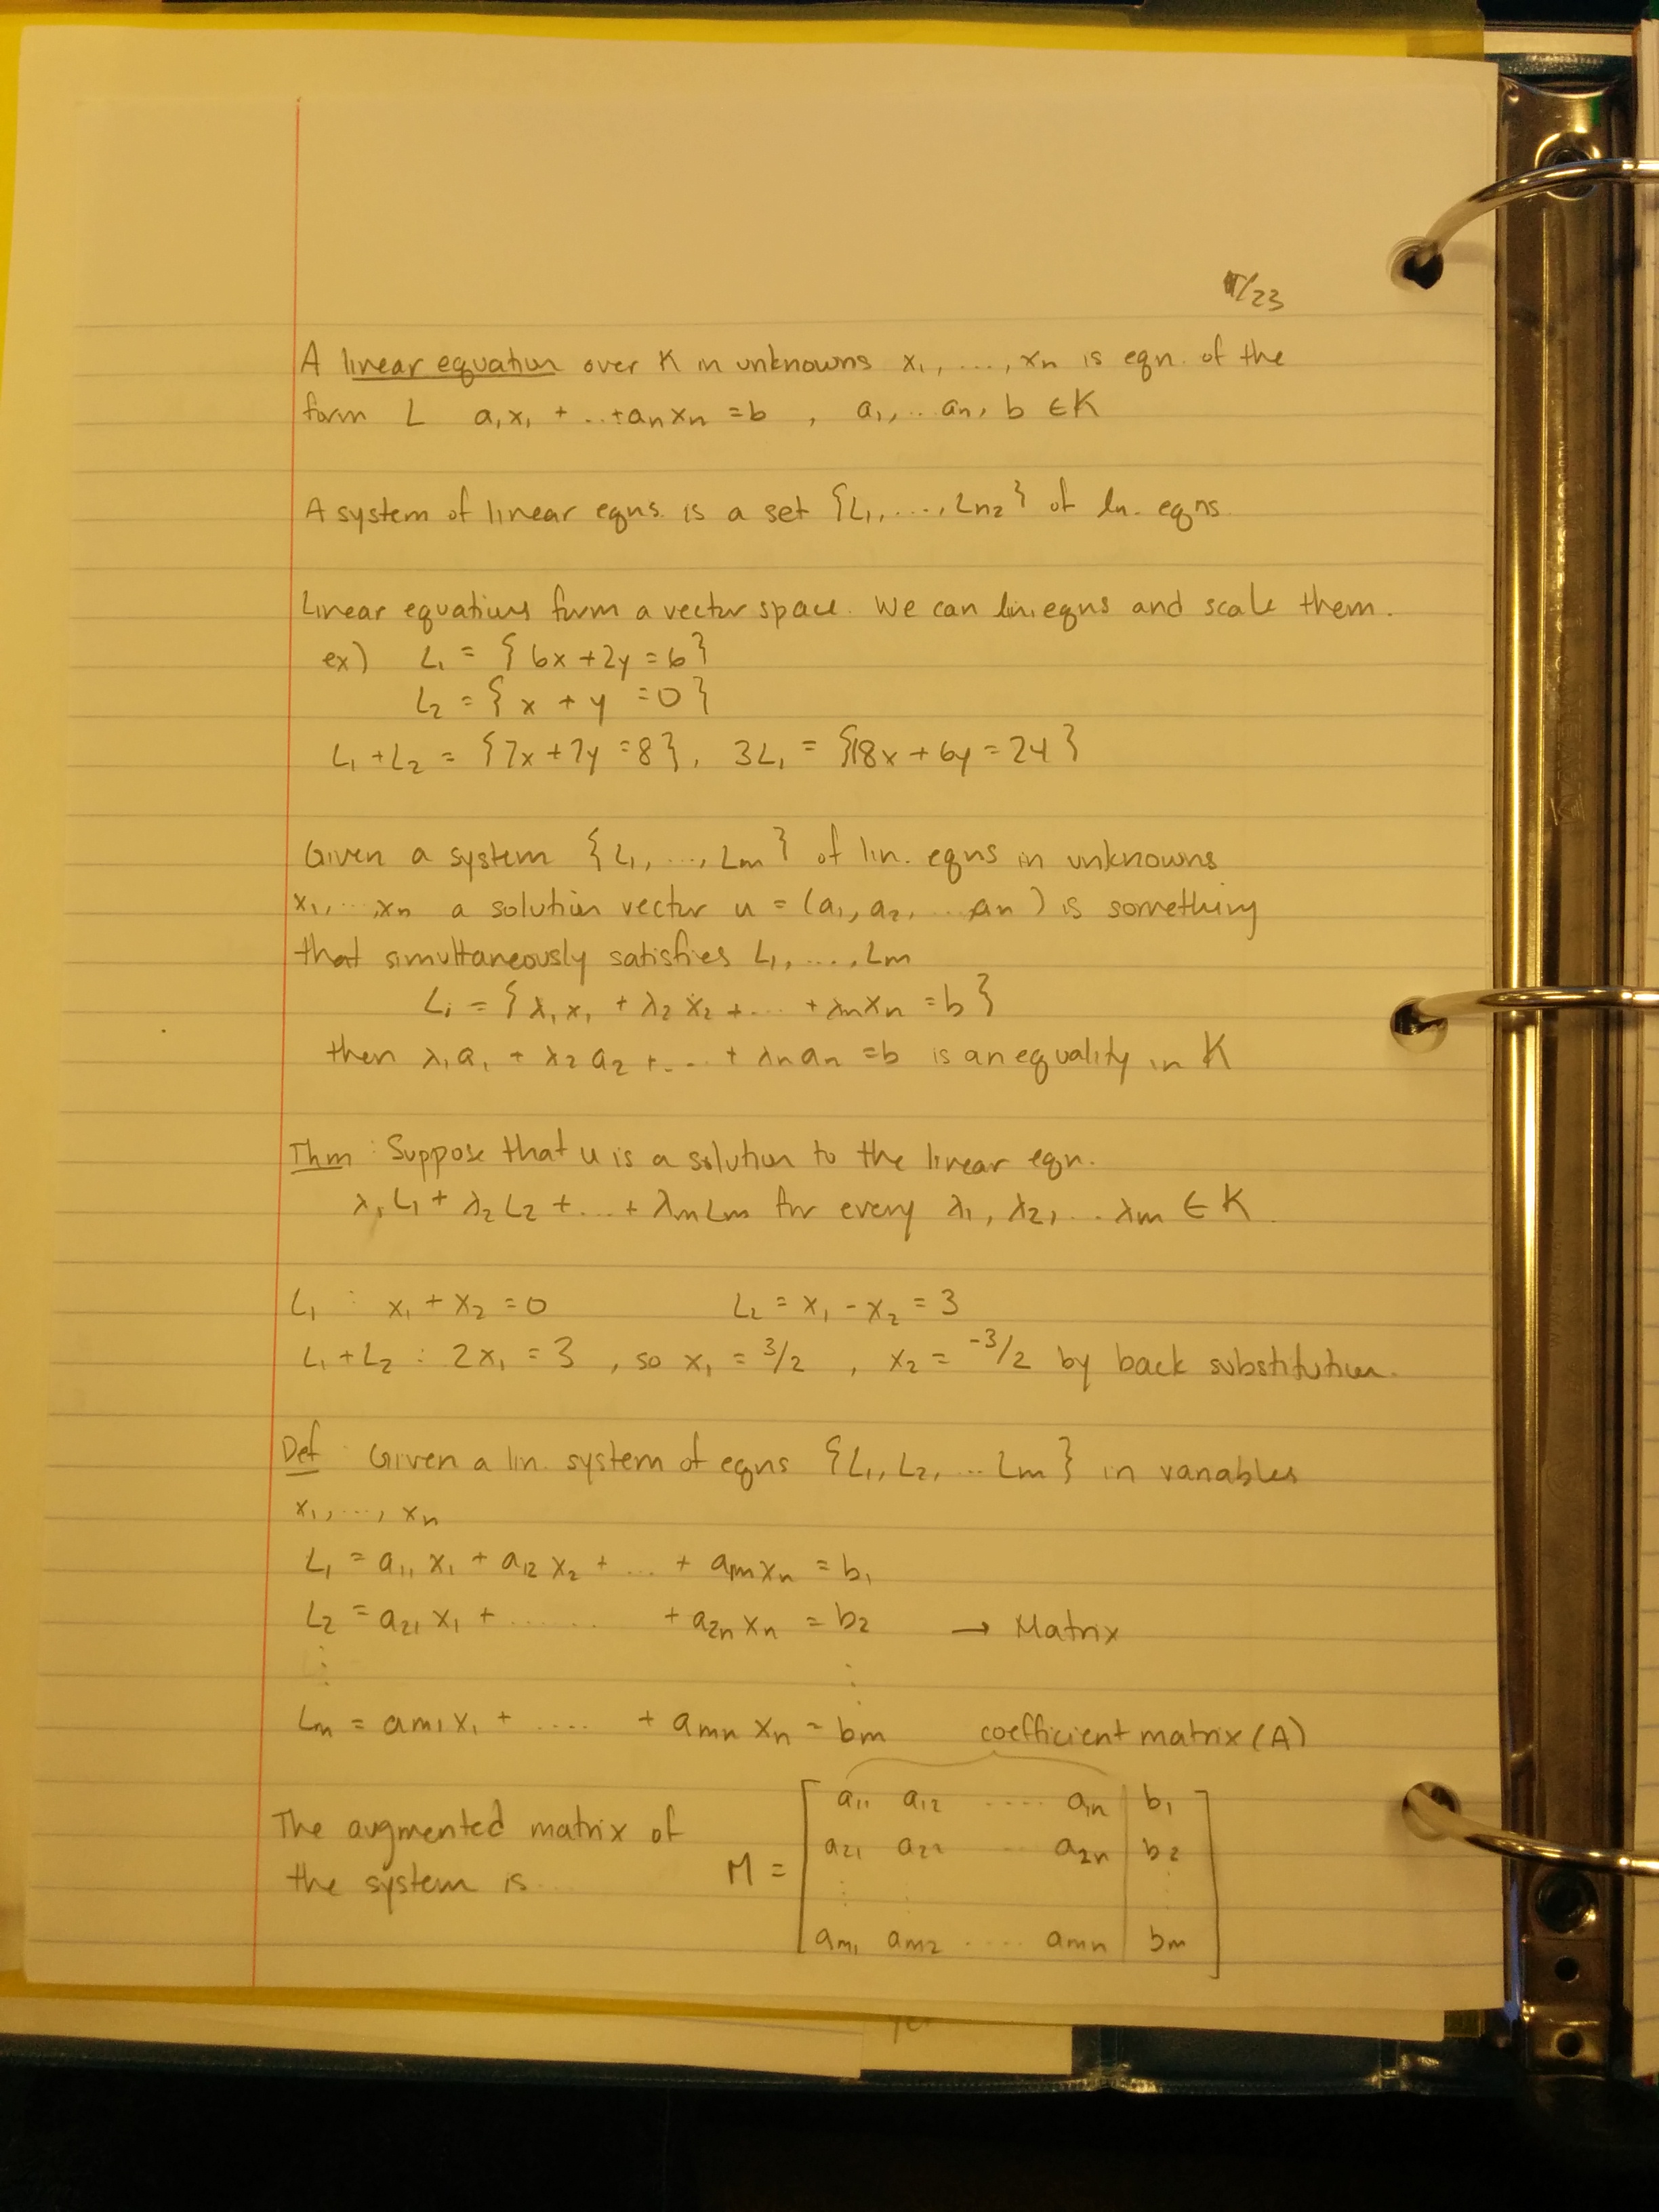 /23
A linear equation over K in unknowns x₁, ...., xₙ is eqn. of the
form L a₁x₁ + ...+aₙxₙ = b , a₁,.. aₙ, b ∈K
A system of linear eqns. is a set {L₁,....,Lₙ₂} of ln. eqns
Linear equations form a vector space. We can lin. eqns and scale them.
ex) L₁ = {6x+2y=6}
L₂ = {x + y =0}
L₁+L₂ = {7x+7y=8}, 3L₁ = {18x+6y=24}
Given a system {L₁, ..., Lm} of lin. eqns in unknowns
x₁,...,xₙ a solution vector u = (a₁, a₂, ... aₙ) is something
that simultaneously satisfies L₁, ...., Lm
Lᵢ = {λ₁x₁ + λ₂x₂ + ... + λₙxₙ =b}
then λ₁a₁ + λ₂a₂ +... + λₙaₙ =b is an equality in K
Thm : Suppose that u is a solution to the linear eqn.
λ₁L₁ + λ₂L₂ +... + λmLm for every λ₁, λ₂, .. λm ∈ K.
L₁ : x₁ + x₂ =0 L₂ = x₁ - x₂ = 3
L₁+L₂ : 2x₁ = 3 , so x₁ = 3/2 , x₂ = -3/2 by back substitution.
Def : Given a lin. system of eqns {L₁, L₂, ... Lm} in variables
x₁, ..., xₙ
L₁ = a₁₁ x₁ + a₁₂ x₂ + ... + xₙ = b₁
L₂ = a₂₁ x₁ + ...... + a₂ₙ xₙ = b₂ → Matrix
⋮ ⋮
Lm = am₁ x₁ + .... + amn xₙ = bm coefficient matrix (A)
The augmented matrix of
the system is ...
M =
a₁₁ a₁₂ .... a₁ₙ | b₁
a₂₁ a₂₂ ... a₂ₙ | b₂
⋮ ⋮
am₁ am₂ .... amn | bm